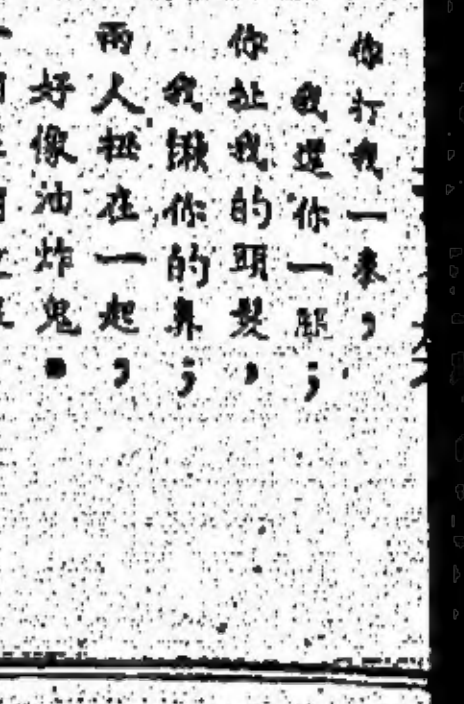 你打我一拳，
我還你一腿；
你扯我的頭髮，
我揪你的鼻；
兩人扭在一起，
好像油炸鬼。